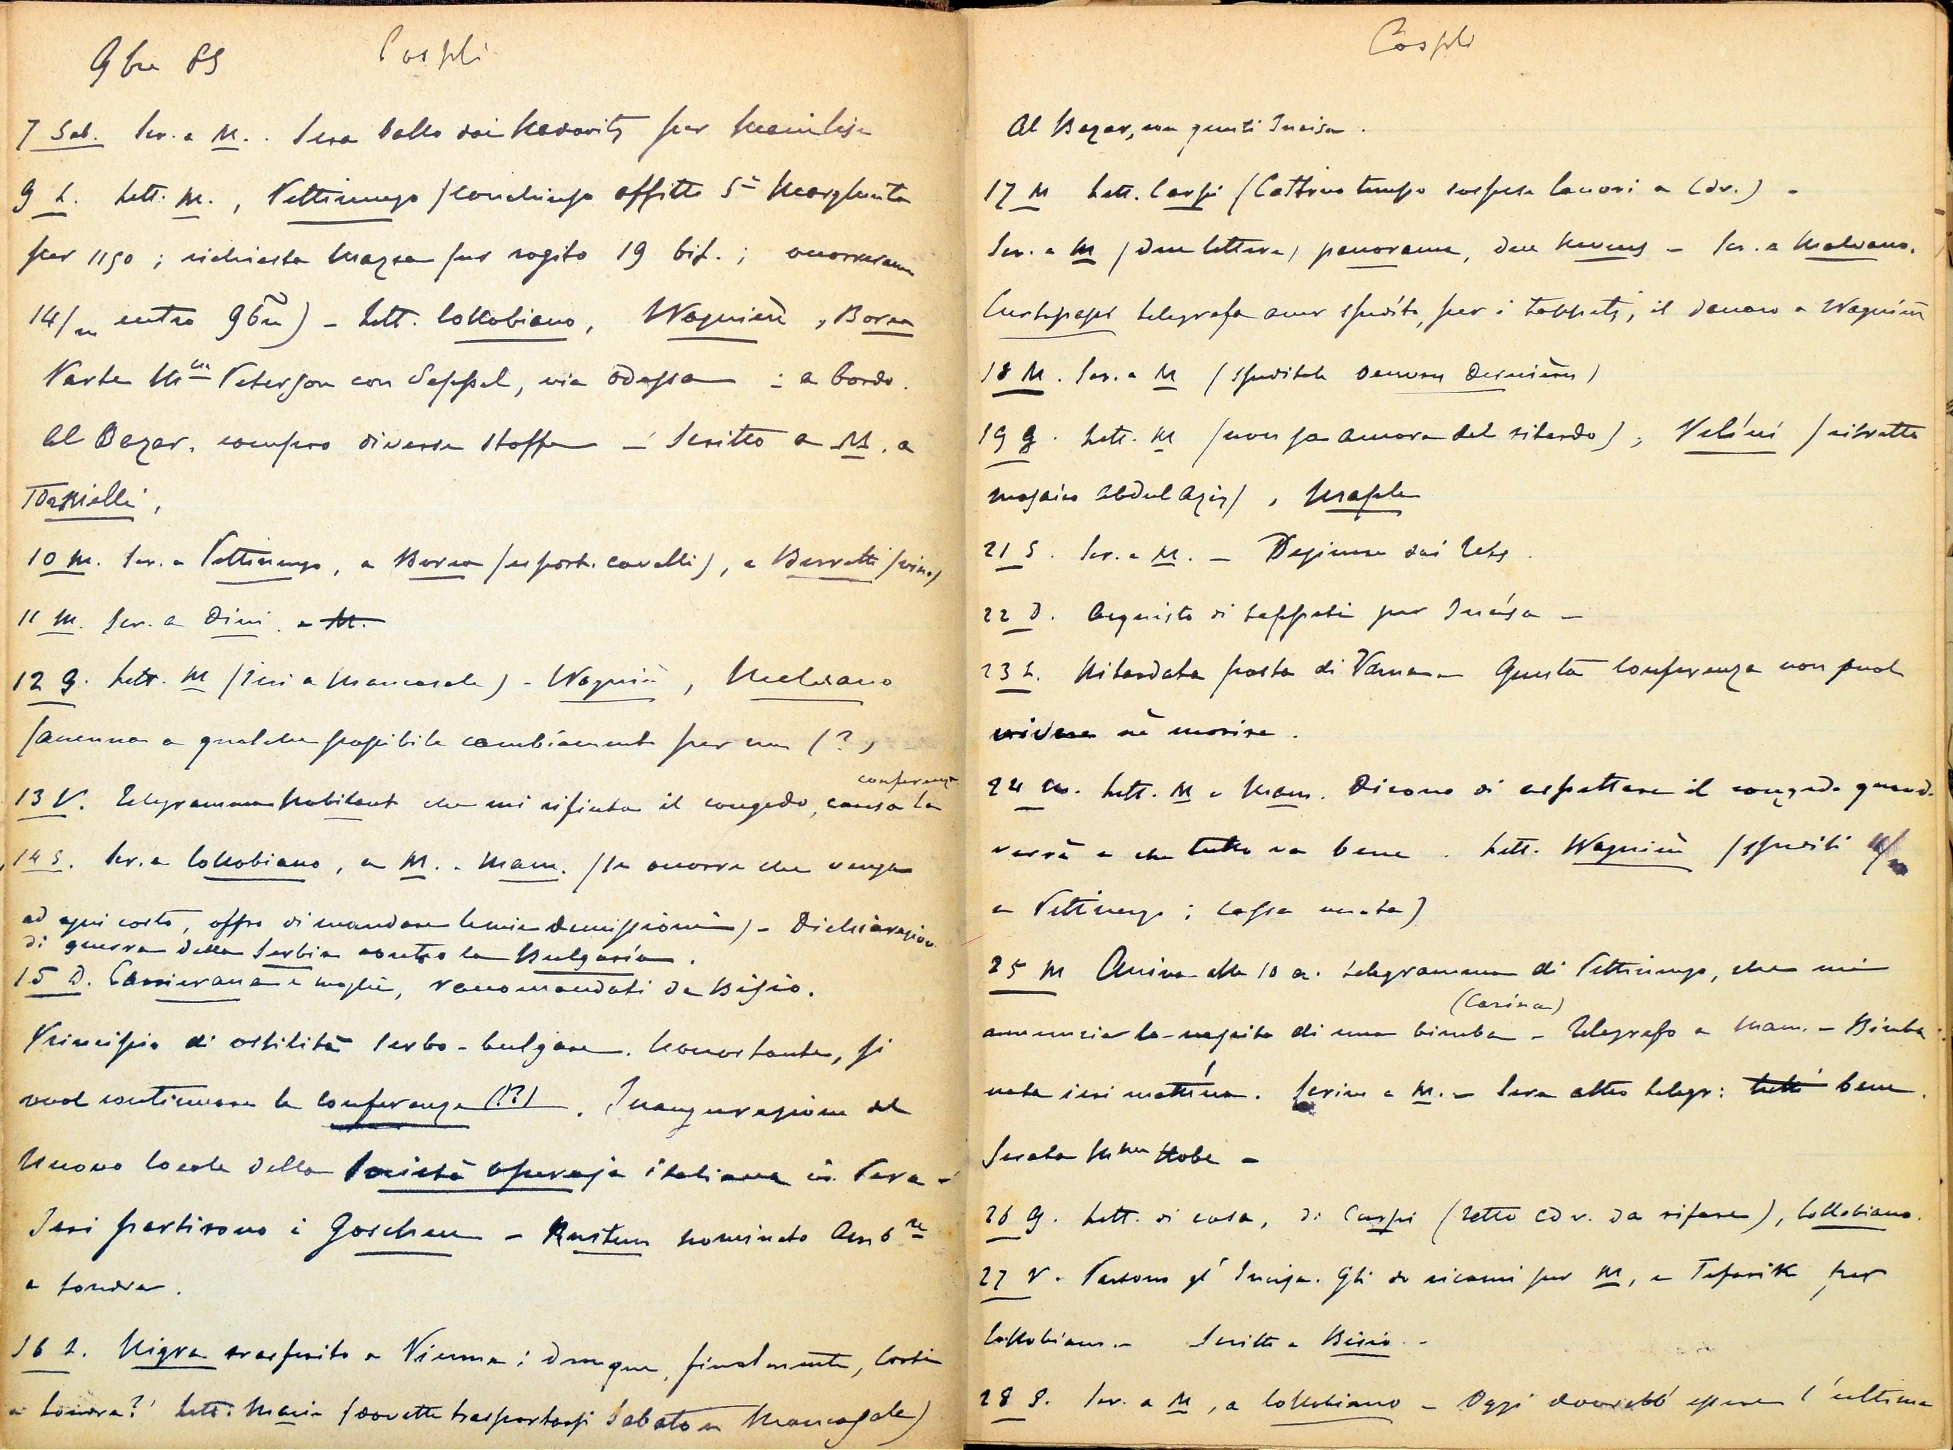 9bre 85 Cospli
7 Sab. Scr. a M. . Sera ballo dai per
9 L. Lett. M., Pettinengo (conchiuso affitto Sa Margherita
per 1150; richiesta Mazza per rogito 19 bis.; occorreranno
14/m entro 9bre) - Lett. Collobiano, Wagnière, Borea
Parte Mme Peterson con Seppel, via Odessa - : a bordo.
Al Bazar, compro diverse stoffe - Scritto a M. a
10 M. Scr. a Pettinengo, a Borea (esport. cavalli), a Berretti (vino)
11 M. Scr. a Dini a M.
12 G. Lett. M (ieri a Mancasale) - Wagnière, Malvano
(accenna a qualche possibile cambiamento per me (?)
13 V. Telegramma Robilant che mi rifiuta il congedo, causa la conferenza
14 S. Scr. a Collobiano, a M. a Mam. (se occorre che venga
ad ogni costo, offro di mandare le mie dimissioni) - Dichiarazione
di guerra della Serbia contro la Bulgaria.
15 D. e moglie, raccomandati da Bisio.
Principio di ostilità serbo-bulgare. Nonostante, si
vuol continuare la conferenza (!?) . Inaugurazione del
nuovo locale della Società operaja italiana in Pera -
Ieri partirono i Goschen - Rustem nominato Ambre
a Londra.
16 L. Nigra trasferito a Vienna; dunque, finalmente, Corti
a Londra?! Lett: Maria (dovette trasportarsi Sabato a Mancasale)
Cospli
Al Bazar, con Incisa.
17 M Lett. Carpi (Cattivo tempo sospese lavori a Cdv.) -
Scr. a M (due lettere) panorama, due - Scr. a Malvano.
telegrafa aver spedito, per i tappeti, il denaro a Wagnière
18 M. Scr. a M (speditele)
19 G. Lett. M (non sa ancora del ritardo), (ritratto
mosaico Abdul Aziz), Maple
21 S. Scr. a M. - Dejiuner dai
22 D. Acquisto di tappeti per Incisa -
23 L. Ritardata posta di Varna - Questa conferenza non vuol
vivere nè morire.
24 M. Lett. M e Mam. Dicono di aspettare il congedo quando
verrà e che tutto va bene. Lett. Wagnière (spediti 4/m
a Pettinengo; cassa vuota)
25 M Arriva alle 10 a. telegramma di Pettinengo, che mi
annuncia la nascita di una bimba (Carina) - Telegrafo a Mam. - Bimba
nata ieri mattina! Scrivo a M. - Sera altro telegr: tutto bene.
Serata Mme
26 G. Lett. di casa, di Carpi (Tetto Cdv. da rifare), Collobiano.
27 V. Partono gl' Incisa. Gli do ricami per M, e Tefarik per
Collobiano. - Scritto a Bisio. -
28 S. Scr. a M, a Collobiano - Oggi dovrebb' essere l'ultima